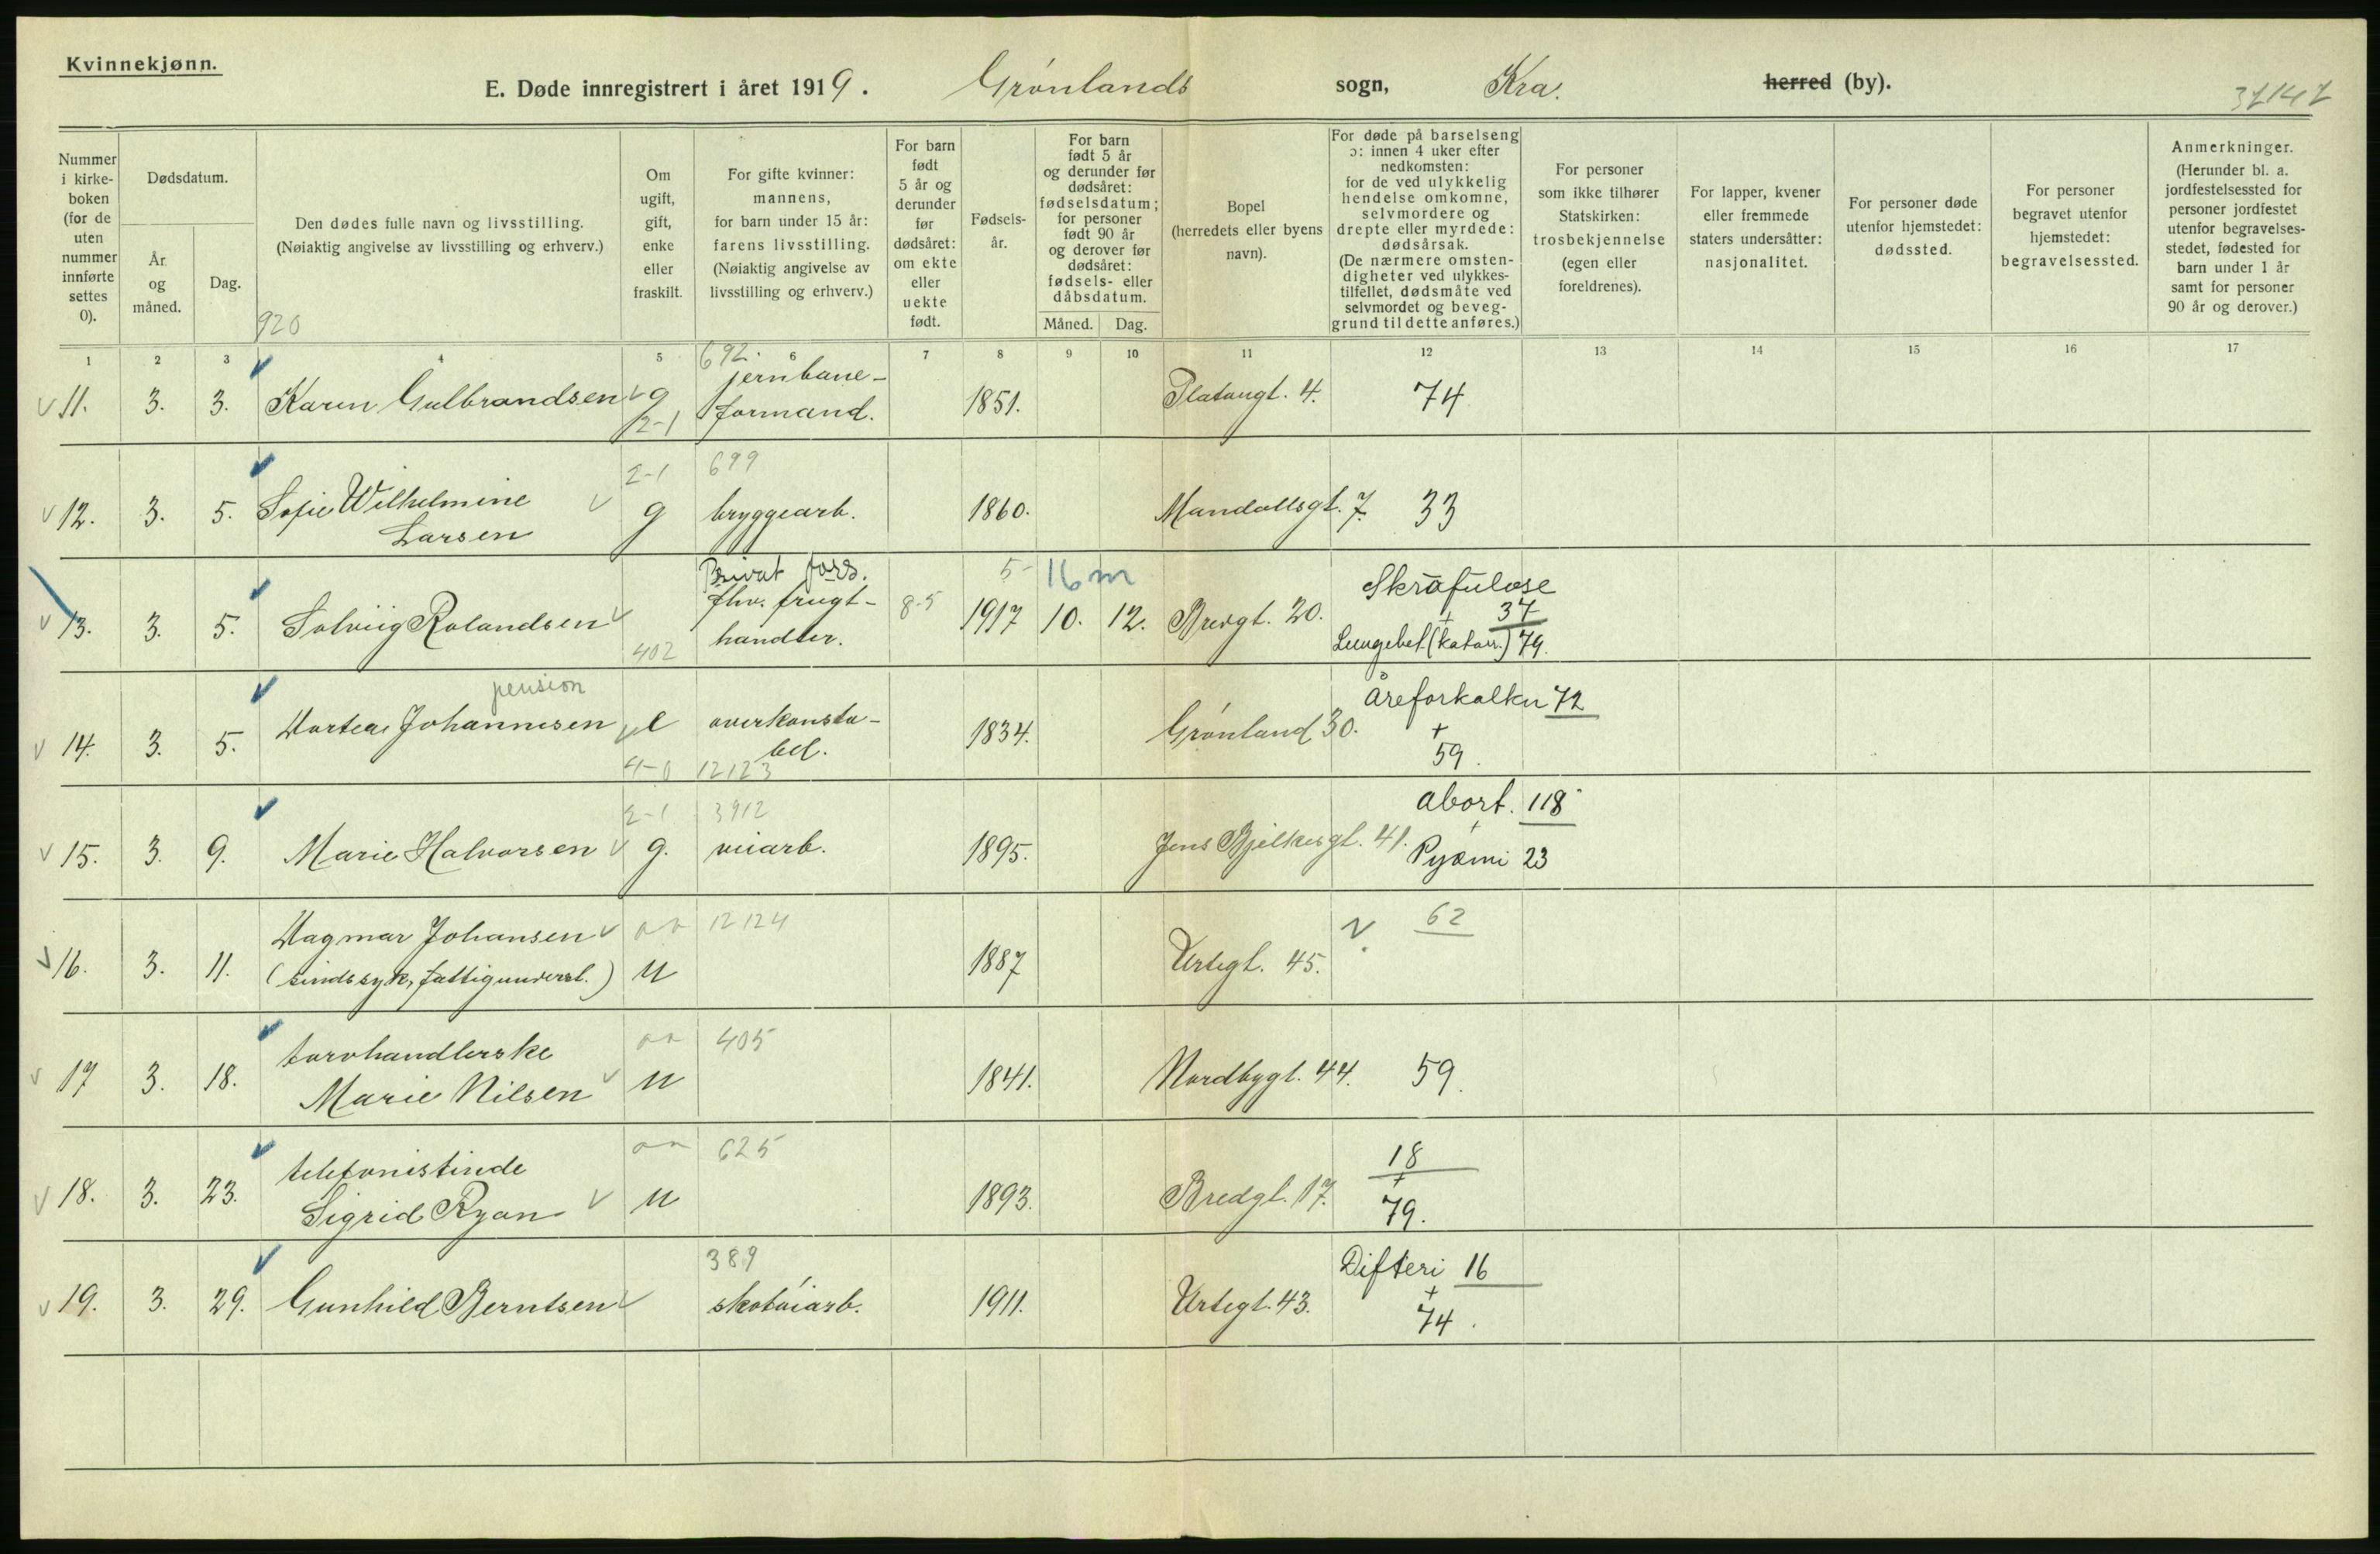 Kvinnekjønn.
E. Døde innregistrert i året 1919. Grønlands sogn, Kra. herred (by).
Nummer i kirke-boken (for de uten nummer innførte settes 0).
Dødsdatum.
År og måned.
Dag.
Den dødes fulle navn og livsstilling.
(Nøiaktig angivelse av livsstilling og erhverv.)
920
Om ugift, gift, enke eller fraskilt.
For gifte kvinner: mannens, for barn under 15 år: farens livsstilling. (Nøiaktig angivelse av livsstilling og erhverv.)
For barn født 5 år og derunder før dødsåret: om ekte eller uekte født.
Fødsels-år.
For barn født 5 år og derunder før dødsåret: fødselsdatum; for personer født 90 år og derover før dødsåret: fødsels- eller dåbsdatum.
Måned. Dag.
Bopel (herredets eller byens navn).
For døde på barselseng ɔ: innen 4 uker efter nedkomsten: for de ved ulykkelig hendelse omkomne, selvmordere og drepte eller myrdede: dødsårsak. (De nærmere omsten-digheter ved ulykkes-tilfellet, dødsmåte ved selvmordet og beveg-grund til dette anføres.)
For personer som ikke tilhører Statskirken: trosbekjennelse (egen eller foreldrenes).
For lapper, kvener eller fremmede staters undersåtter: nasjonalitet.
For personer døde utenfor hjemstedet: dødssted.
For personer begravet utenfor hjemstedet: begravelsessted.
Anmerkninger. (Herunder bl. a. jordfestelsessted for personer jordfestet utenfor begravelses-stedet, fødested for barn under 1 år samt for personer 90 år og derover.)
1 2 3 4 5 6 7 8 9 10 11 12 13 14 15 16 17
692.
jernbane-
11. 3. 3. Karen Gulbrandsen g formand. 1851. Platougt. 4. 74
2-1
2-1 699
12. 3. 5. Sofie Wilhelmine g bryggearb. 1860. Mandallsgt. 7. 33
Larsen
Privat fors. 5- 16 m Skrofuløse
fhv. frugt- 8-5 37
13. 3. 5. Solveig Rolandsen handler. 1917 10. 12. Bredgt. 20. +
402 Lungebet. (katarr.) 79.
pension Åreforkalkn 72
14. 3. 5. Dortea Johannesen overkonsta- 1834. Grønland 30. +
bel. 59.
4-0 12123
2-1 3912 abort. 118
15. 3. 9. Marie Halvorsen g. veiarb. 1895. Jens Bjelkesgt. 41. +
Pyæmi 23
Dagmar Johansen 12124 62
16. 3. 11. (sindssyk, fattigunderst.) u 1887 Urtegt. 45.
torvhandlerske 405
17 3. 18. Marie Nilsen u 1841. Nordbygt. 44. 59.
telefonistinde 625 18
+
18. 3. 23. Sigrid Ryan u 1893. Bredgt. 17. 79.
389 Difteri 16
19. 3. 29. Gunhild Berntsen skotøiarb. 1911. Urtegt. 43. +
74.